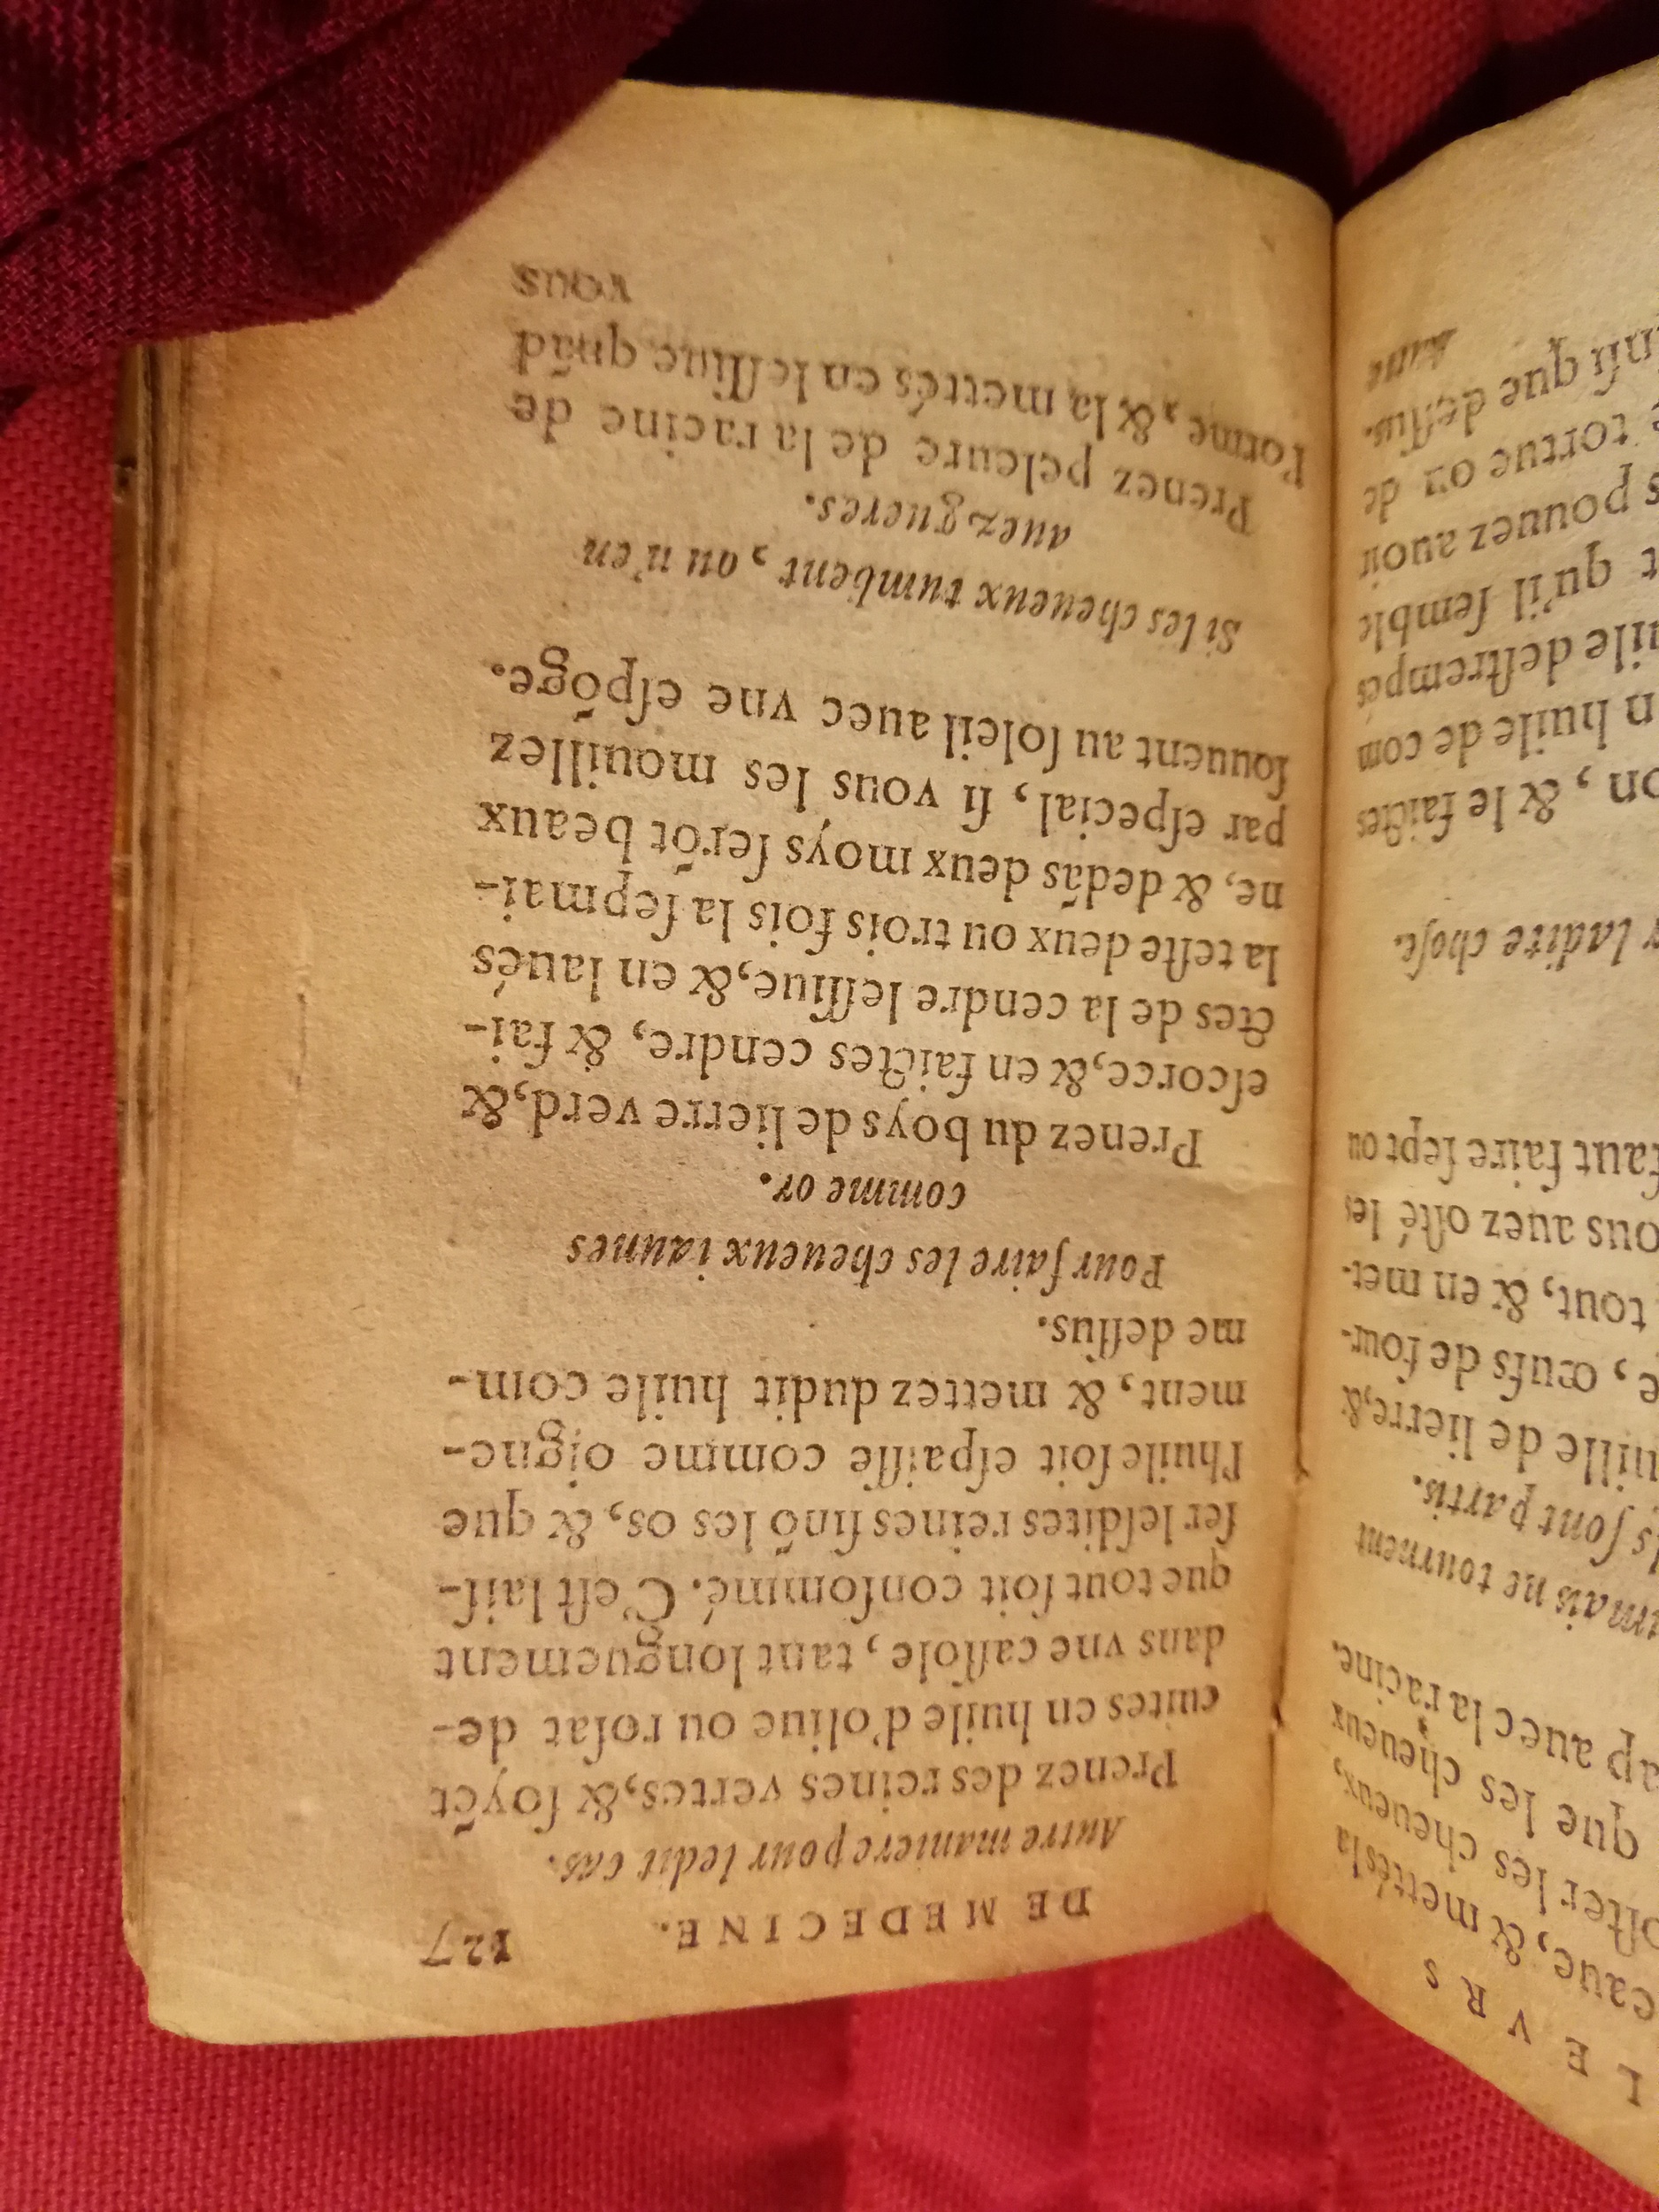 L E V R S
eaue, & mettés la
oſter les cheueux,
que les cheueux
ap auec la racine.
mais ne tournent
ſont partis.
uille de lierre, &
e, œufs de four-
tout, & en met-
ous auez oſté les
faut faire ſept ou
ladite choſe.
on, & le faictes
n huile de com
uile deſtrempés
t qu'il ſemble
s pouuez auoir
tortue ou de
que deſſus.
Autre
DE MEDECINE. 127
Autre maniere pour ledit cas.
Prenez des reines vertes, & ſoyēt
cuites en huile d'oliue ou roſat de-
dans vne caſſole, tant longuement
que tout ſoit conſommé. C'eſt laiſ-
ſer leſdites reines ſinō les os, & que
l'huile ſoit eſpaiſſe comme oigne-
ment, & mettez dudit huile com-
me deſſus.
Pour faire les cheueux iaunes
comme or.
Prenez du boys de lierre verd, &
eſcorce, & en faictes cendre, & fai-
ctes de la cendre leſſiue, & en laués
la teſte deux ou trois fois la ſepmai-
ne, & dedās deux moys ſerōt beaux
par eſpecial, ſi vous les mouillez
ſouuent au ſoleil auec vne eſpōge.
Si les cheueux tumbent, ou n'en
auez gueres.
Prenez peleure de la racine de
l'orme, & la mettés en leſſiue quād
vous